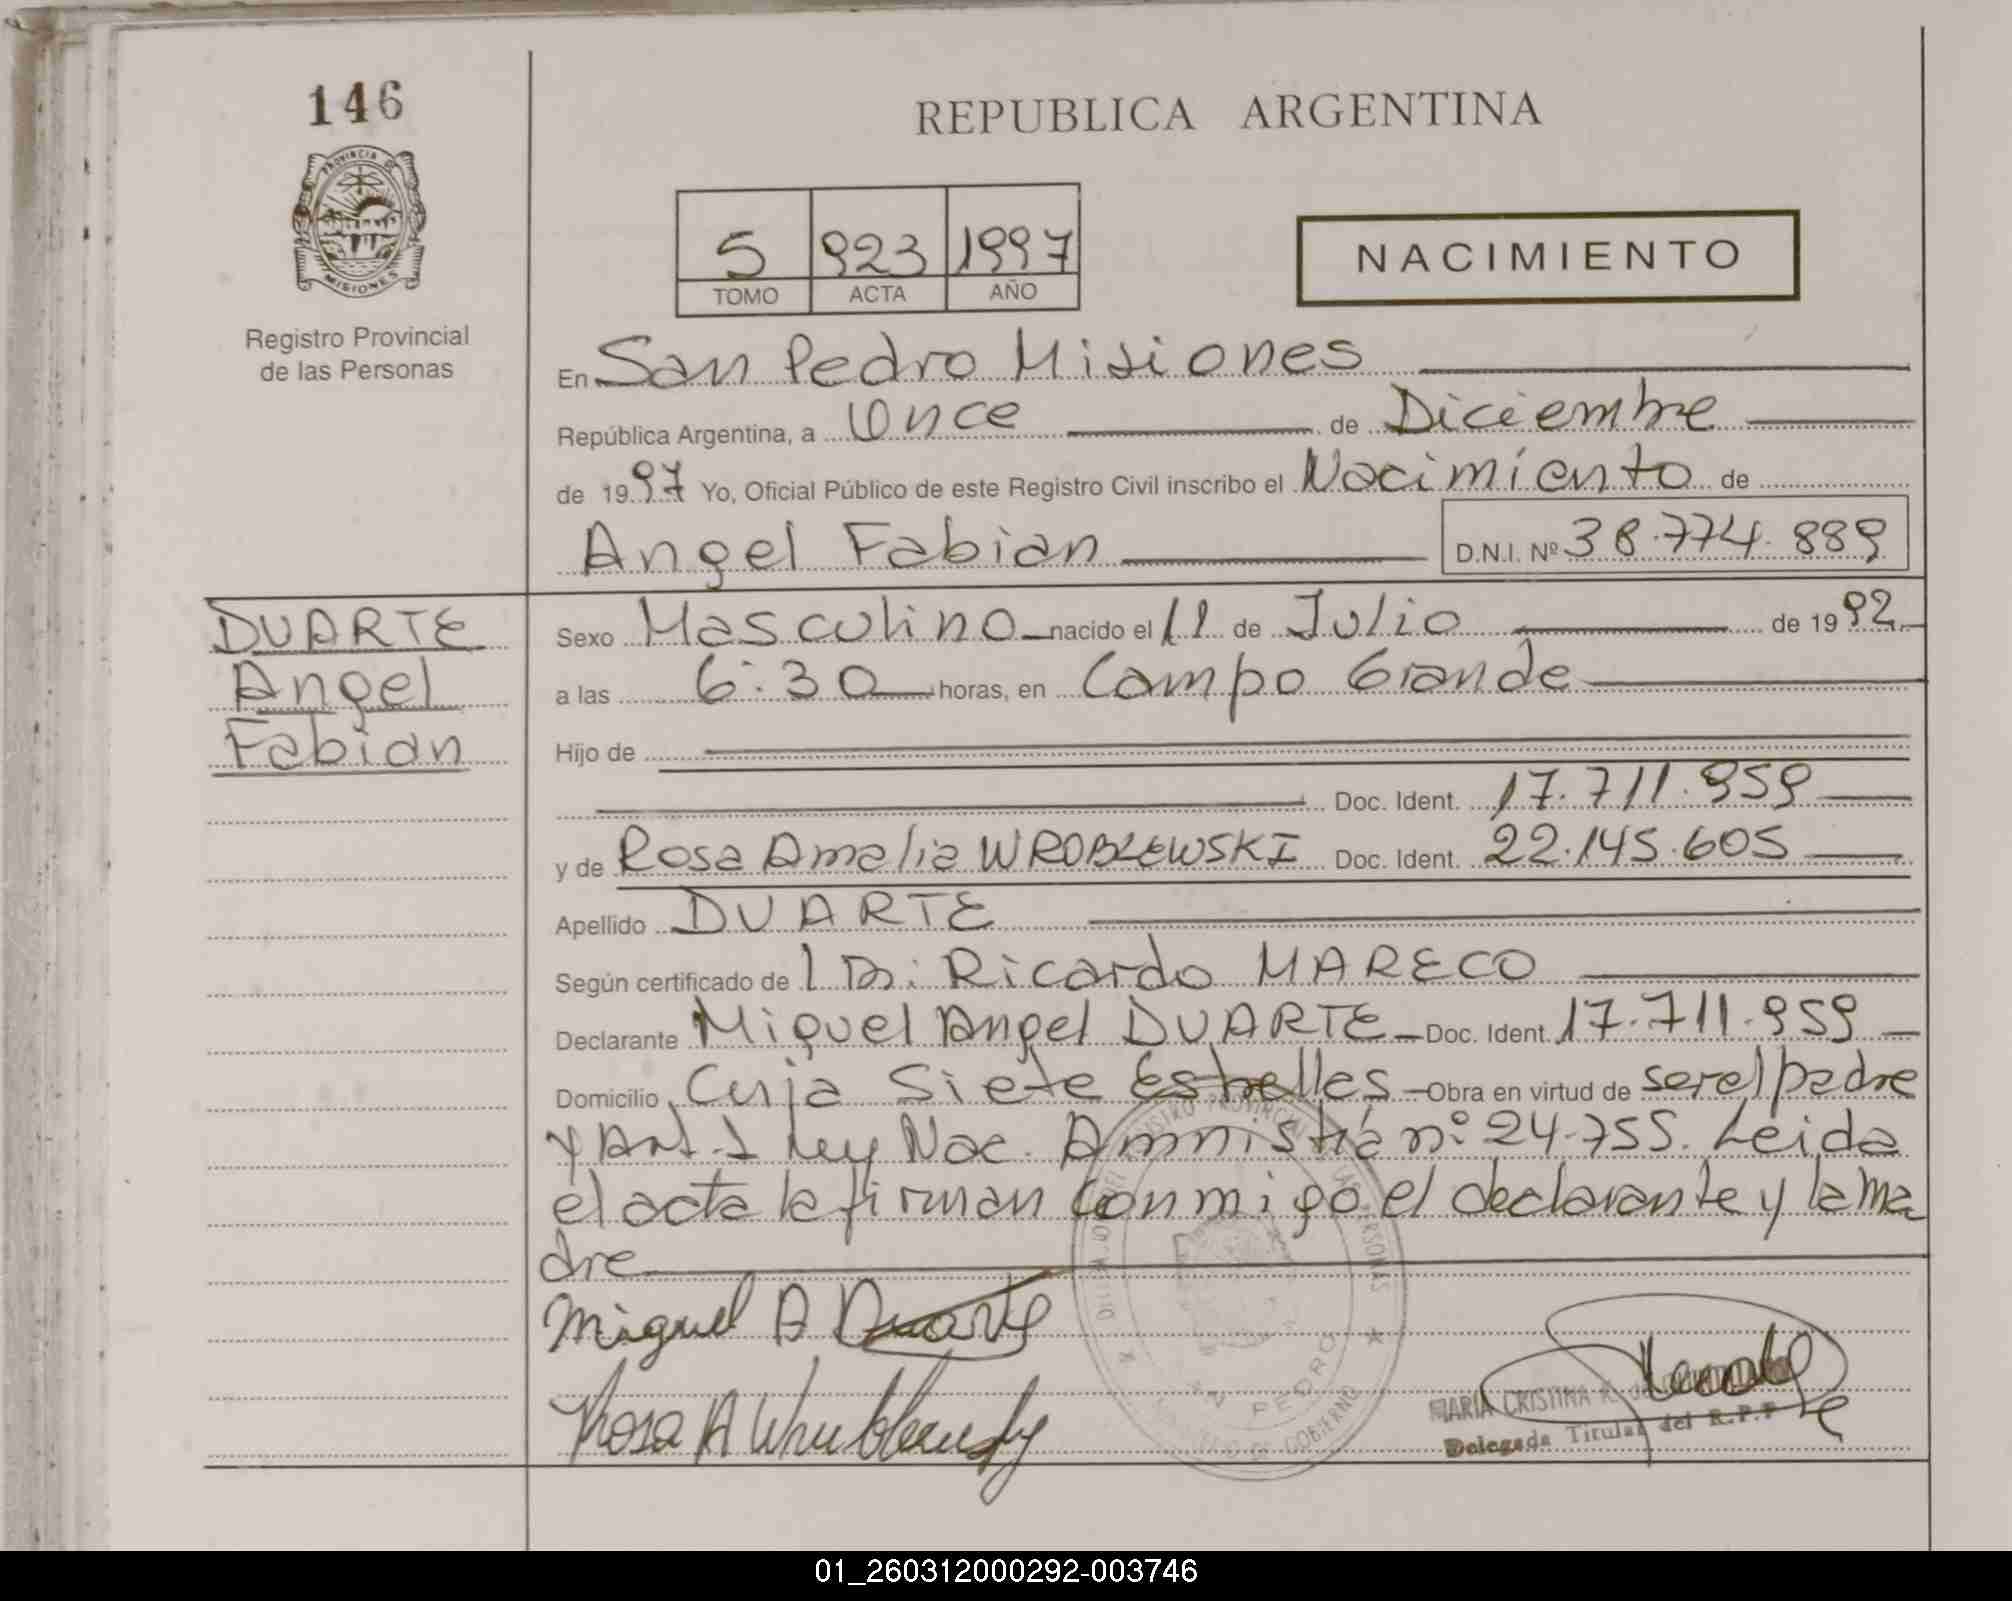 146
REPUBLICA ARGENTINA
PROVINCIA DE
MISIONES
Registro Provincial
de las Personas
5 923 1997
TOMO ACTA AÑO
NACIMIENTO
En San Pedro Misiones
República Argentina, a Once de Diciembre
de 1997 Yo, Oficial Público de este Registro Civil inscribo el Nacimiento de
Angel Fabian D.N.I. Nº 38.774.889
DUARTE
Angel
Fabian
Sexo Masculino nacido el 11 de Julio de 1992
a las 6:30 horas, en Campo Grande
Hijo de
Doc. Ident. 17.711.959
y de Rosa Amalia WROBLEWSKI Doc. Ident. 22.145.605
Apellido DUARTE
Según certificado de Ricardo MARECO
Declarante Miguel Angel DUARTE Doc. Ident. 17.711.959
Domicilio Cruja Siete Estrelles Obra en virtud de ser el padre
y Art. 1 Ley Nac. Amnistia nº 24.755. Leida
el acta la firman conmigo el declarante y la ma
dre
Miguel A Duarte
Rosa A
PEDRO
MARIA CRISTINA
Delegada Titular del R.P.P
01_260312000292-003746